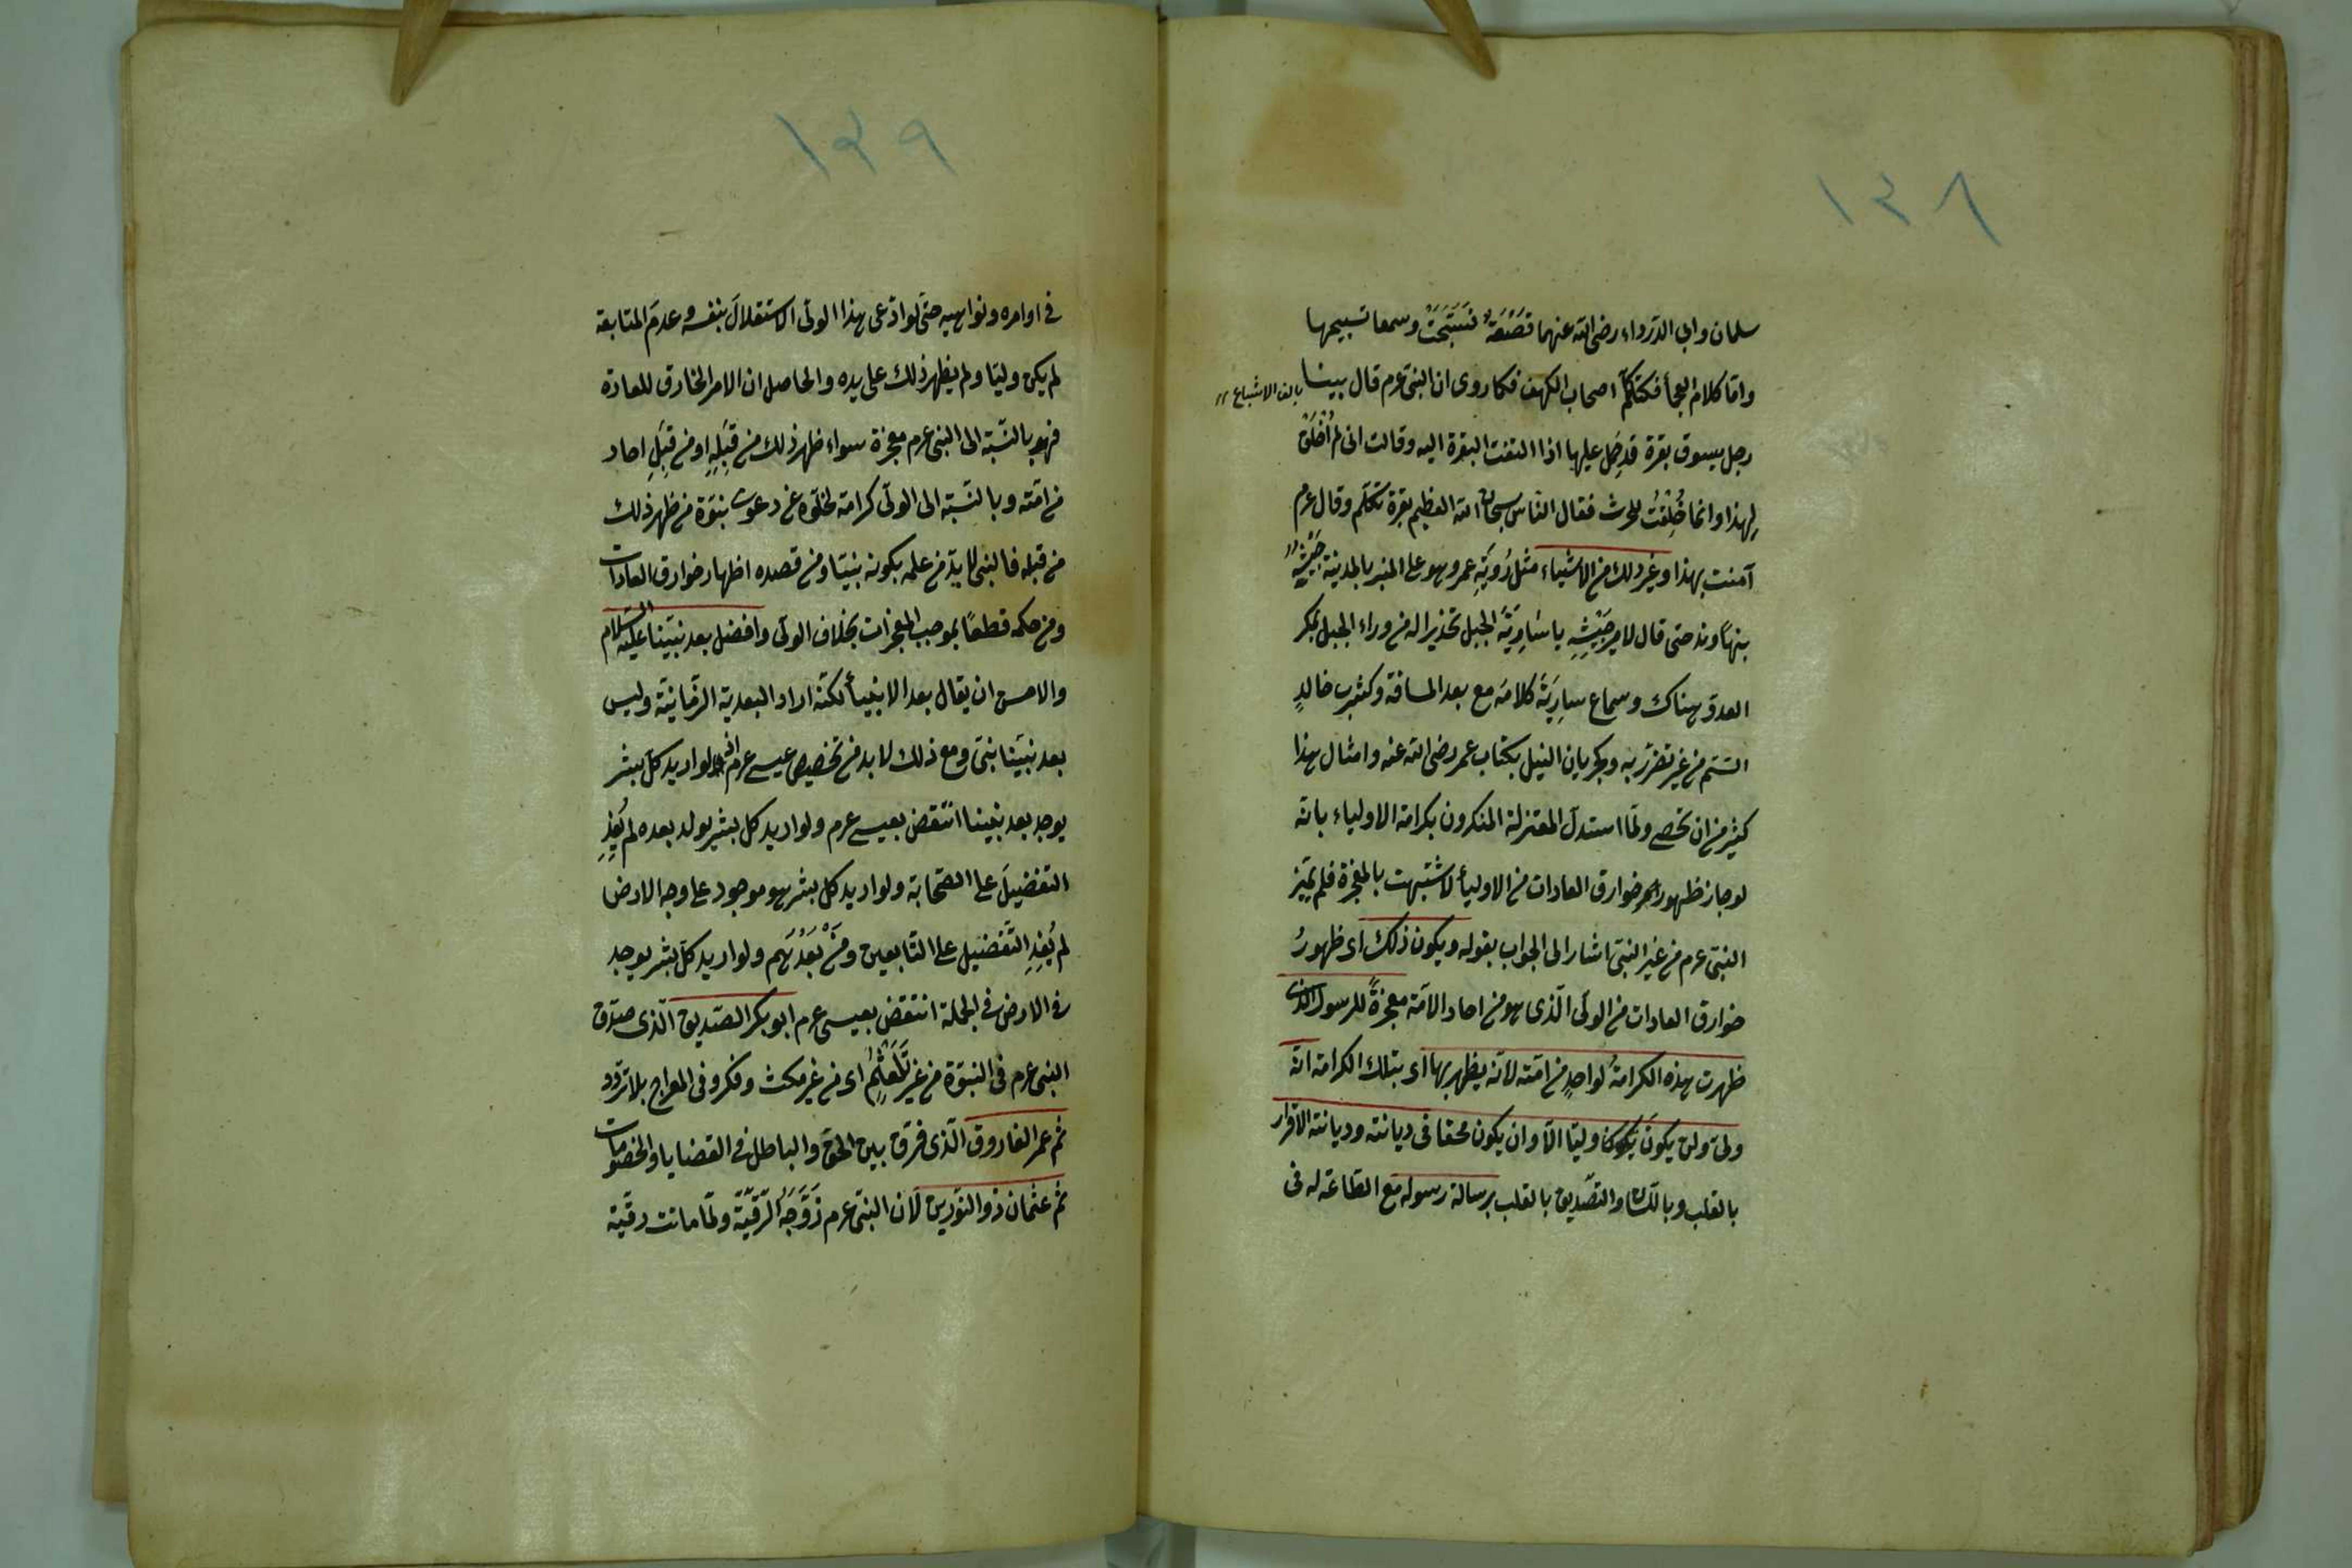 ١٣٨
سلمان وابي الدّرداء رضى الله عنهما قَصْعَةٌ فسَبَّحَتْ وسمعا تسبيحها
وامّا كلام العجماء فكتكلّم اصحاب الكهف فكما روى ان النبى عرم قال بينا
بالف الاشباع
رجل يسوق بقرة قد حَمل عليها اذا التفت البقرة اليه وقالت انى لم اُخْلَقْ
لهذا وانما خُلِقْتُ للحرث فقال النّاس سبحان الله العظيم بقرة تتكلّم وقال عرم
آمنت بهذا وغير ذلك من الاشياء مثل رُويَةِ عمر وهو على المنبر بالمدينة جَيْشَهُ
بنهاوند حتى قال لامير جَيْشِهِ يا سَارِيَةُ الجبل تحذيرا له من وراء الجبل لمكر
العدوّ هناك وسماع سارِيَةَ كلامَه مع بعد المسافة وكشرب خالدٍ
السّم من غير تضرّر به وبجريان النيل بكتاب عمر رضى الله عنه وامثال هذا
كثير من ان تحصى ولمّا استدلّ المعتزلة المنكرون بكرامة الاولياء بانّه
لو جاز ظهور خوارق العادات من الاولياء لاشتبهت بالمعجزة فلم يتميّز
النبىّ عرم من غير النبىّ اشار الى الجواب بقوله ويكون ذلك اى ظهورُ
خوارق العادات من الولىّ الّذى هو من احاد الامّة معجزةً للرسول الذى
ظهرت هذه الكرامةُ لواحِدٍ من امّته لانّه يظهر بها اى بتلك الكرامة انّه
ولىّ ولن يكونَ وليّا الّا وان يكون محقا فى ديانته وديانته الاقرار
بالقلب وباللسان والتصديق بالقلب برسالة رسوله مع الطاعة له فى
١٣٩
فى اوامره ونواهيه حتى لو ادّعى هذا الولىّ الاستقلالَ بنفسه وعدمَ المتابعة
لم يكن وليّا ولم يظهر ذلك على يده والحاصل ان الامر الخارق للعادة
فهو بالنّسبة الى النبى عرم معجزة سواء ظهر ذلك من قِبَلِهِ او من قِبَلِ احاد
من امّته وبالنّسبة الى الولىّ كرامة لخلوّه عن دعوى نبوّة من ظهر ذلك
من قبله فالنبى لا بدّ من علمه بكونه نبيّا ومن قصده اظهار خوارق العادات
ومن حكمه قطعًا بموجب المعجزات بخلاف الولىّ وافضل بعد نبيّنا عليه السّلام
والاحسن ان يقال بعد الانبياء لكنّه اراد البعدية الزّمانيّة وليس
بعد نبيّنا نبىّ ومع ذلك لا بد من تخصيص عيسى عرم اذ لو اريد كلّ بشر
يوجد بعد نبينا انتقض بعيسى عرم ولو اريد كل بشر يولد بعده لم يُفِدِ
التفضيلَ على الصّحابة ولو اريد كل بشر هو موجود على وجه الارض
لم يُفِدِ التّفضيل على التّابعين ومَنْ بَعْدَهم ولو اريد كلّ بشر يوجد
فى الارض فى الجملة انتقض بعيسى عرم ابو بكر الصّديق الّذى صدّق
النبى عرم فى النبوّة من غير تَلَعْثُمٍ اى من غير مكث وفكر وفى المعراج بلا تردد
ثم عمر الفاروق الّذى فرّق بين الحقّ والباطل فى القضايا والخصومات
ثم عثمان ذو النّورين لان النبىّ عرم زَوَّجَهُ رقيّة ولمّا ماتت رقيّة